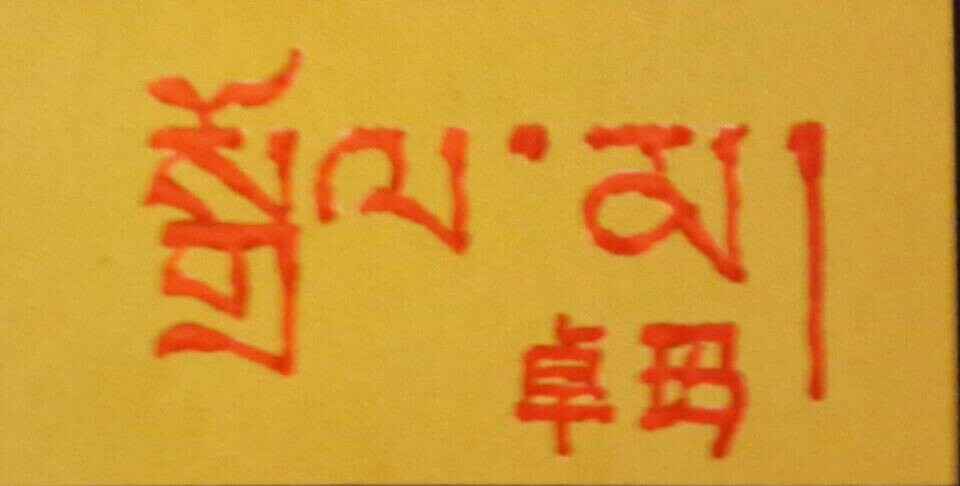 སྒྲོལ་མ།
卓玛